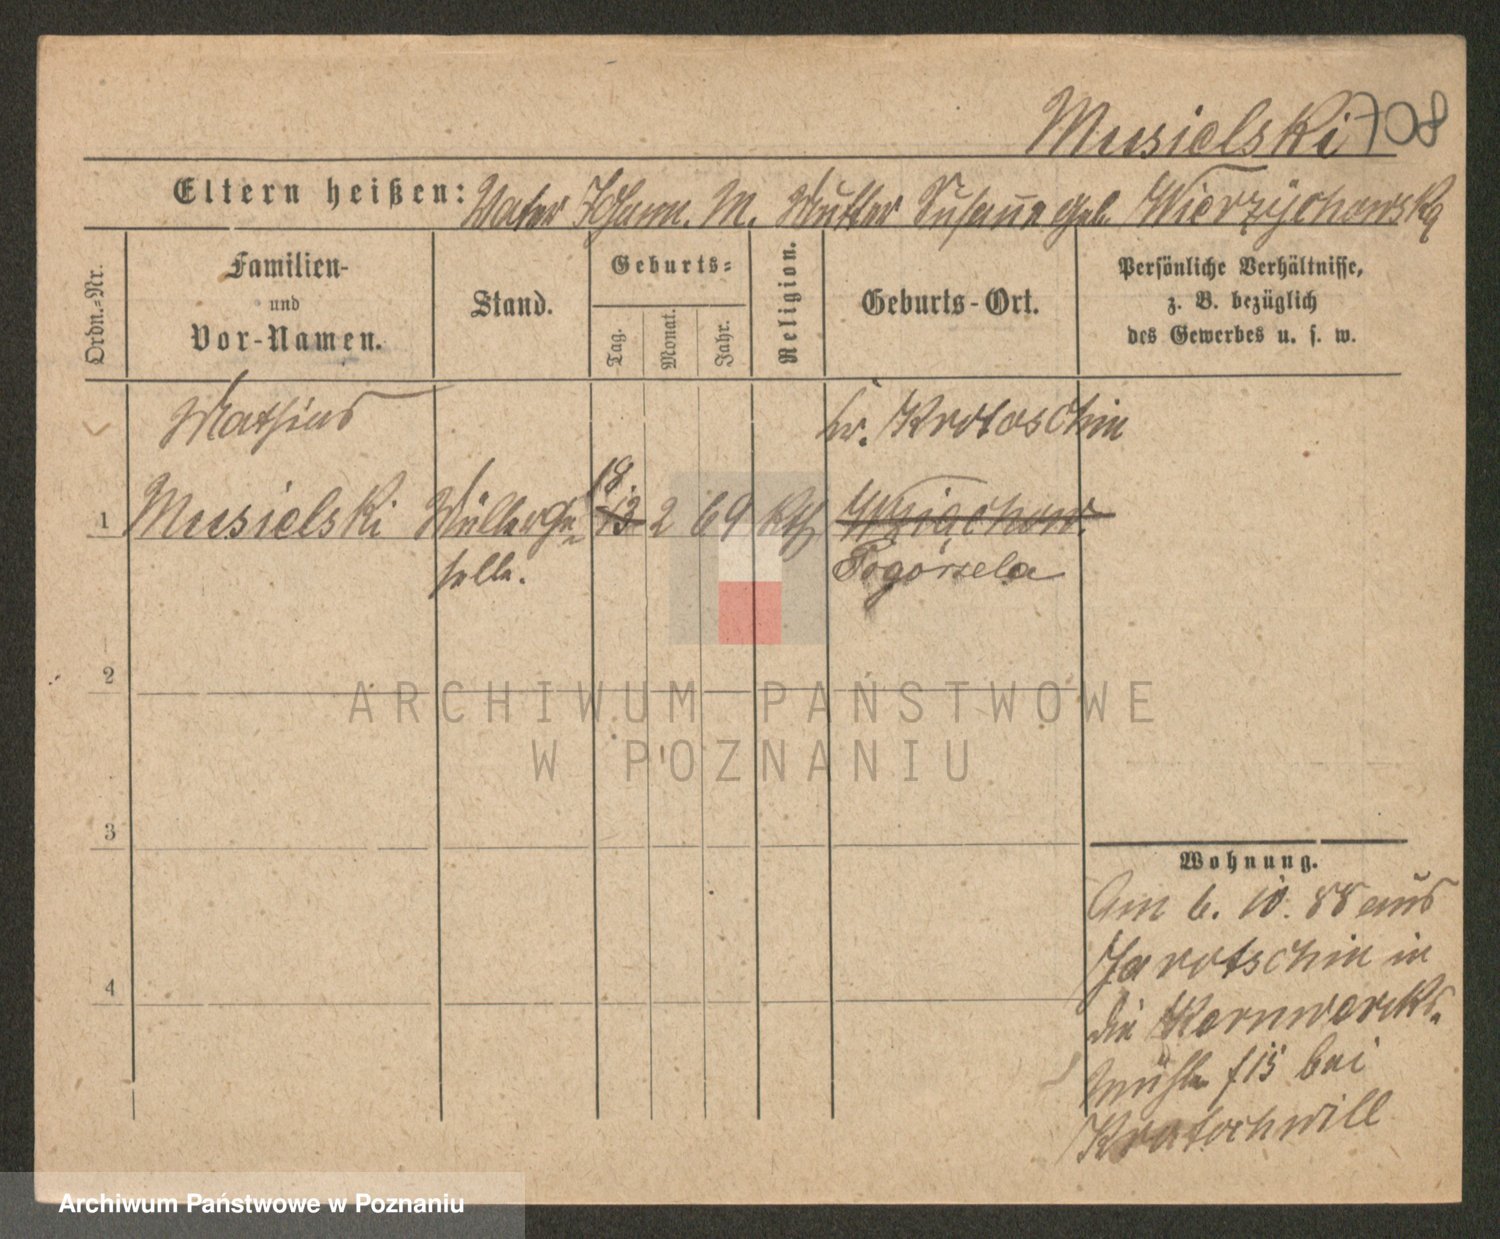 Musielski 708
Eltern heißen: Vater Johann. M. Mutter Susanna geb. Wierzychowska
Ordn.-Nr.
Familien-
und
Vor-Namen.
Stand.
Geburts-
Tag.
Monat.
Jahr.
Religion.
Geburts-Ort.
Persönliche Verhältnisse,
z. B. bezüglich
des Gewerbes u. s. w.
Mathias
Kr. Krotoschin
18
1 Musielski Müllerge- 13 2 69 kth
selle. Pogorzela
2
ARCHIWUM PAŃSTWOWE
W POZNANIU
3
Wohnung.
Am 6. 10. 88 aus
Jarotschin in
die Kornwerks-
mühle f 15 bei
Kratochwill
4
Archiwum Państwowe w Poznaniu